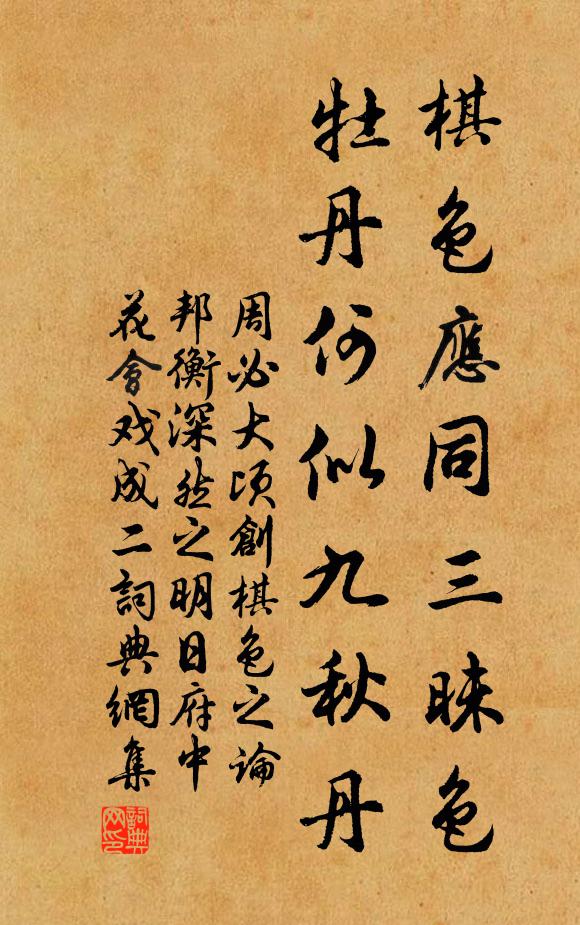 棋色應同三昧色
牡丹何似九秋丹
周必大頃創棋色之論
邦衡深然之明日府中
花會戏成二詞典網集
詞典
网印